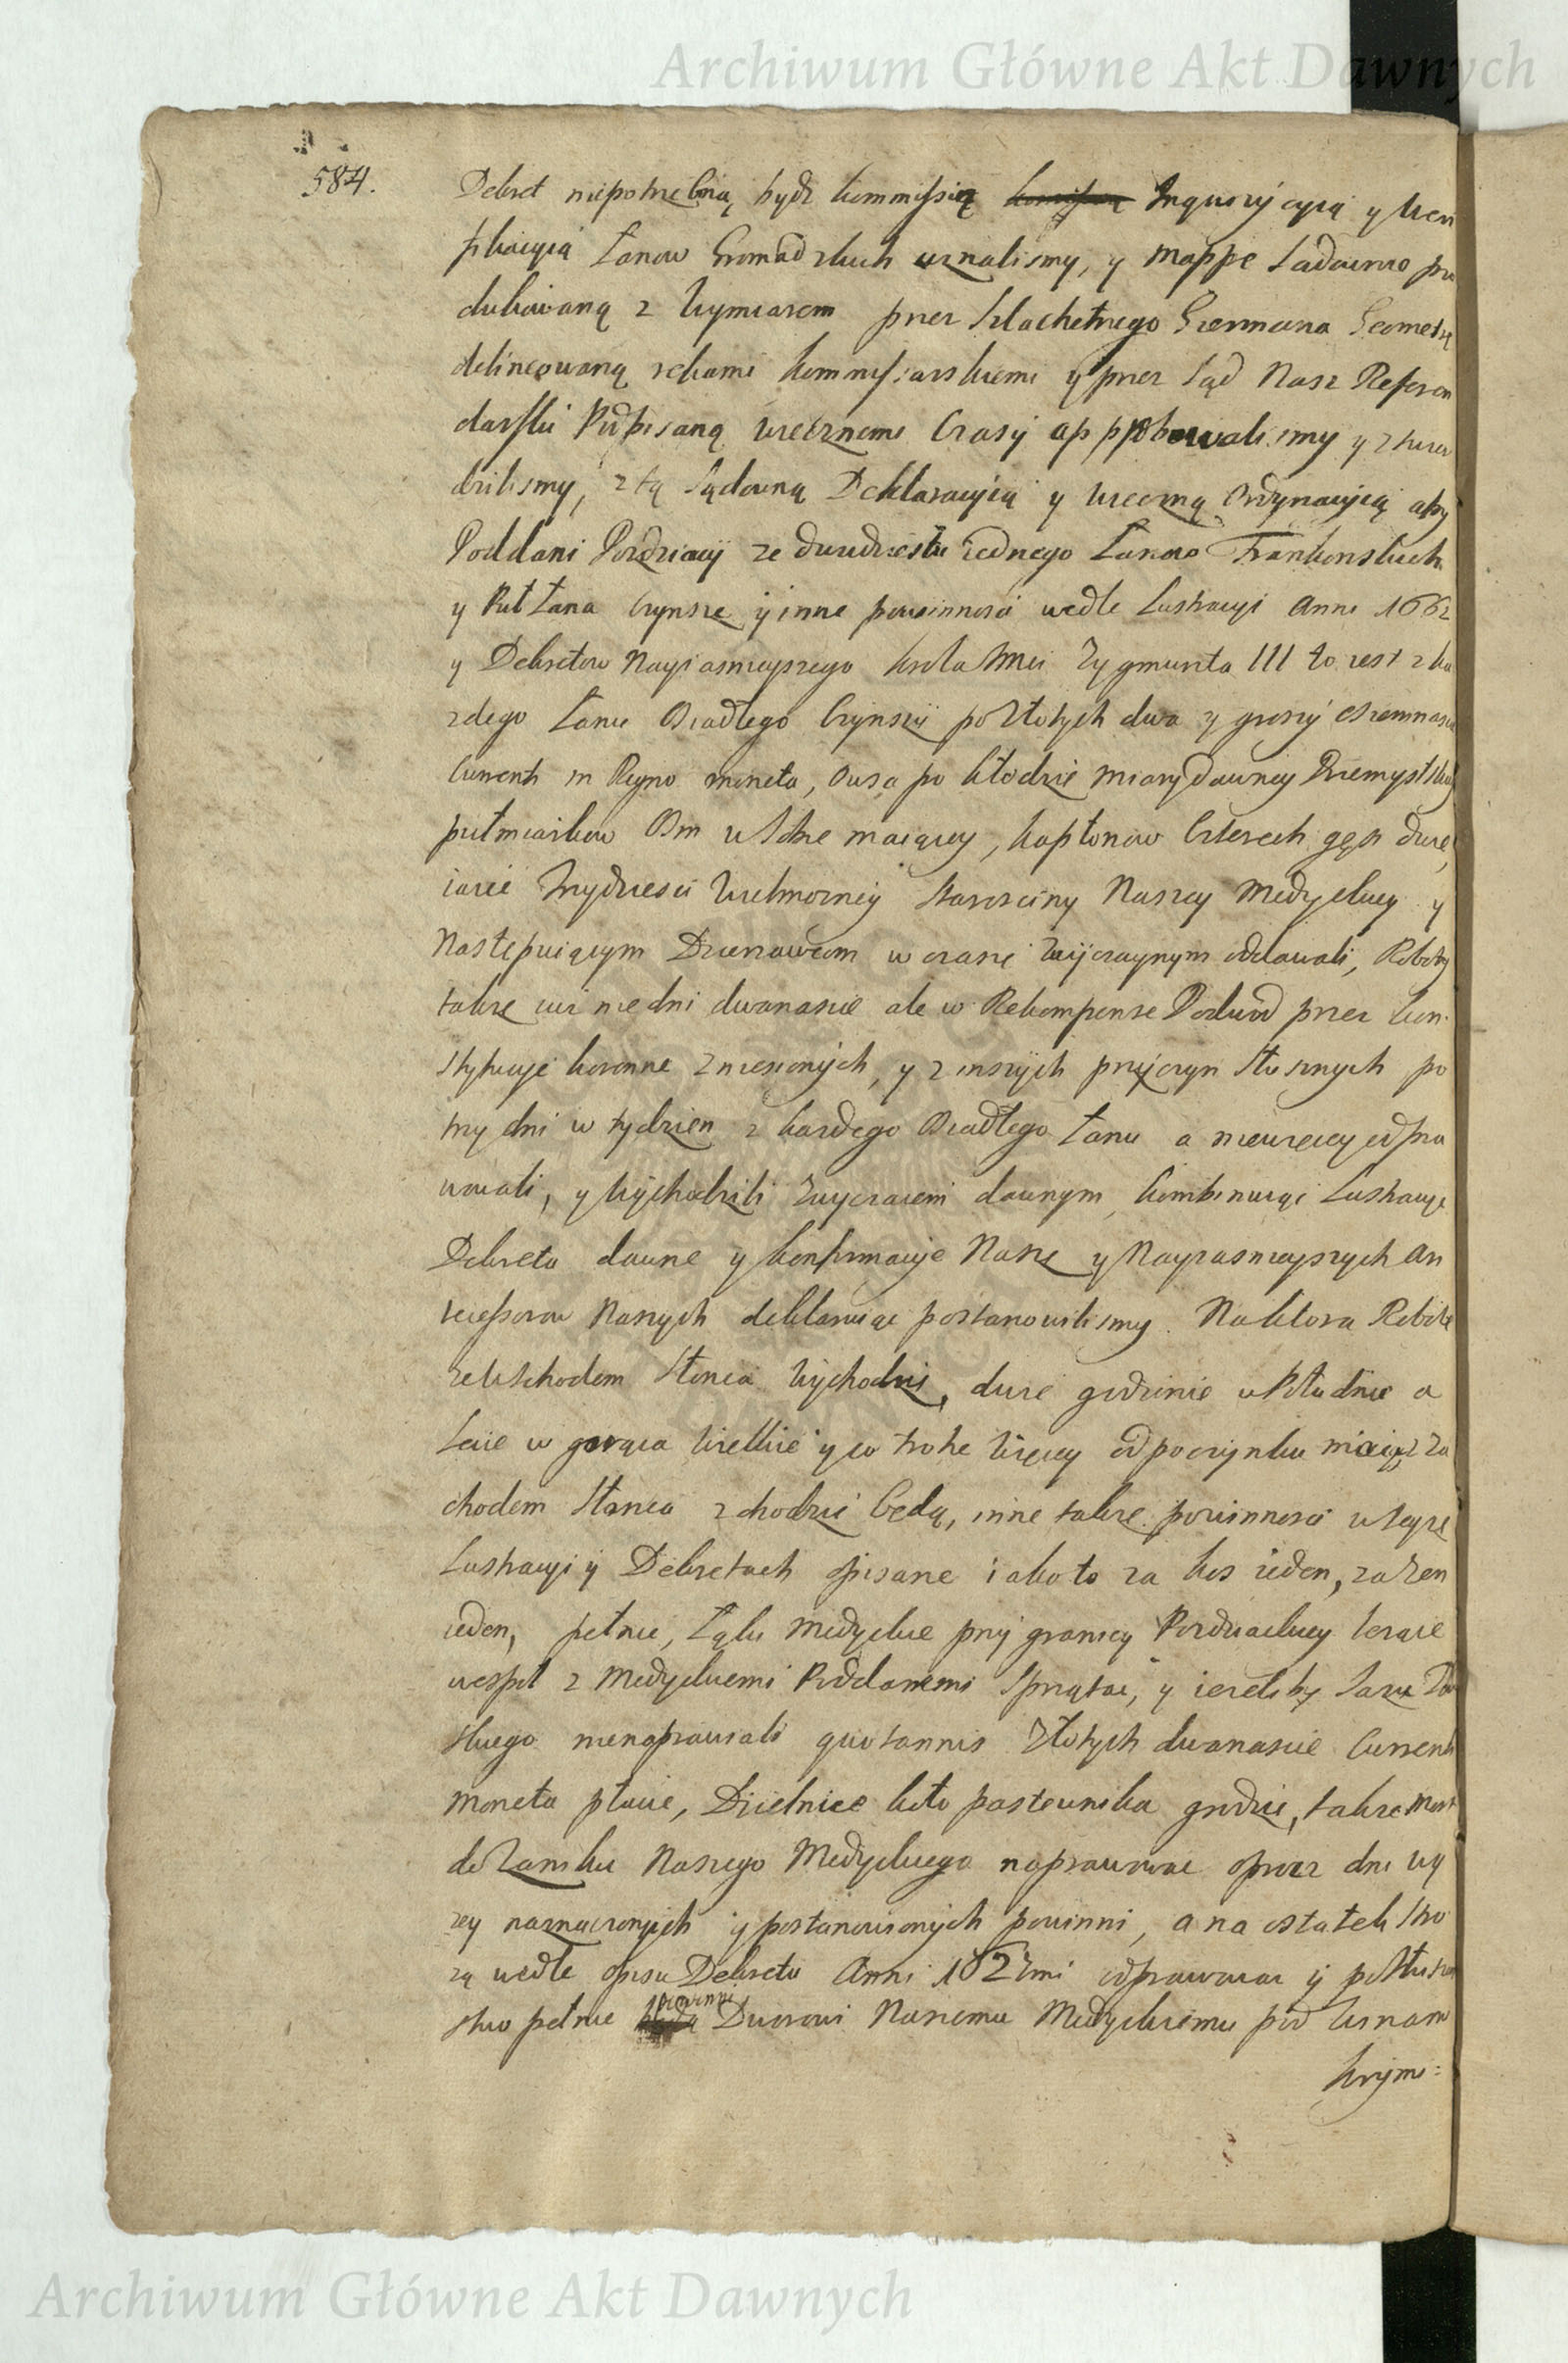 Archiwum Główne Akt Dawnych
584.
Dekret niepotrzebną bydź kommissią Inquizycyią y Wery
fikacyią Łanow Gromadzkich uznalismy, y Mappe Sądowno pro
dukowaną z Wymiarem przez Szlachetnego Geometrę
delineowaną rękami kommissarskiemi y przez Sąd Nasz Referen
darski Podpisaną wiecznemi Czasy approbowalismy y ztwier
dzilismy, z tą Sądowną Deklaracyią y wieczną Ordynacyią aby
Poddani Pozdziaccy ze dwudziestu iednego Łanow Frankonskich
y Puł Łana Czynsze y inne powinnosci wedle Lustracyi Anni 1662
y Dekretow Nayiasnieyszego Krola Jmci Zygmunta III to iest z ka
zdego Łanu Osiadłego Czynszu po Złotych dwa y groszy osiemnascie
Currenti in Regno moneta, Owsa po kłodzie miary dawney Przemyslskiey
pułmiarkow Osm w sobie maiącey, kapłonow Czterech gęsi dwie,
iaiec trzydziesci Wielmozney Starosciny Naszey Medyckiey y
Następuiącym Dzierzawcom w czasie zwyczaynym oddawali, Roboty
takze iuz nie dni dwanascie ale w Rekompense Podwod przez Kon
stytucye koronne zniesionych, y z inszych przyczyn słusznych po
trzy dni w tydzien z kazdego Osiadłego Łanu a niewięcey odpra
wowali, y Wychodzili zwyczaiem dawnym, kombinuiąc Lustracye
Dekreta dawne y konfirmacye Nasze y Nayiasnieyszych An
tecessorow Naszych deklaruiąc postanowilismy. Naktora Robote
ze Wschodem Słonca Wychodzic, dwie godzinie w Południe a
Lecie w gorąca Wielkie y co trohe więcey odpoczynku maiąc, z Za
chodem Słonca zchodzic będą, inne takze powinnosci w teyze
Lustracyi y Dekretach opisane iako to za kos ieden, za zen
ieden, pełnic, Łąki Medyckie przy granicy Pozdziackiey lezące
wespoł z Medyckiemi Poddanemi Sprzątac, y iezeliby Jazu
skiego nienaprawiali quotannis Złotych dwanascie Currenti
moneta płacic, Dzielnice koło pasternika grodzic, takze Most
do Zamku Naszego Medyckiego naprawowac oprocz dni wy
zey naznaczonych y postanowionych powinni, a na ostatek stro
zą wedle opisu Dekretu Anni 1627mi odprawowac y posłuszen
stwo pełnic powinni Dworowi Naszemu Medyckiemu pod winami
krymi:
Archiwum Główne Akt Dawnych